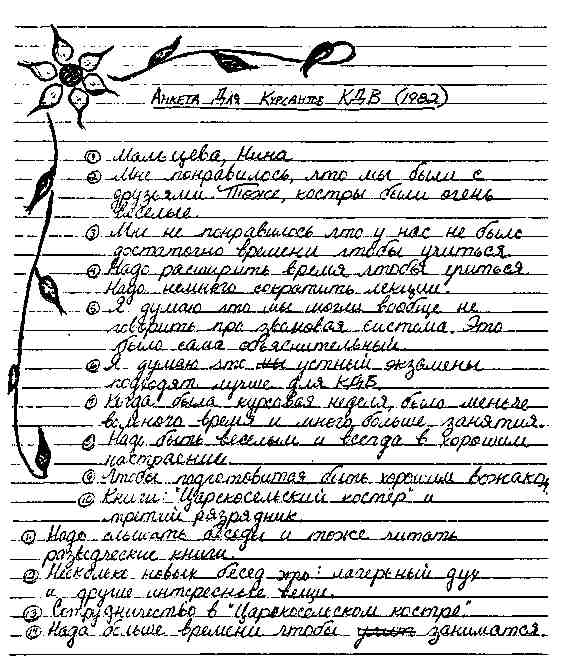 Анкета Для Курсантов КДВ (1982)
① Мальцева, Нина
② Мне понравилось, что мы были с
друзьями. Тоже, костры были очень
веселые.
③ Мне не понравилось что у нас не было
достаточно времени чтобы учиться.
④ Надо расширить время чтобы учиться
Надо немного сократить лекции.
⑤ Я думаю что мы могли вообще не
говорить про звеновая система. Это
было сама объяснительный.
⑥ Я думаю что мы устный экзамены
подходят лучше для КДВ.
⑦ Когда была курсовая неделя, было меньше
времени и много больше занятия.
⑧ Надо быть веселым и всегда в хорошим
настроении.
⑨ Чтобы подготовится быть хорошим вожаком
⑩ Книги: "Царскосельский костёр" и
третий разрядник.
⑪ Надо слышать беседы и тоже читать
разведческие книги.
⑫ Несколько новых бесед это: лагерный дух
и другие интересные вещи.
⑬ Сотрудничество в "Царскосельском костре".
⑭ Надо больше времени чтобы заниматся.